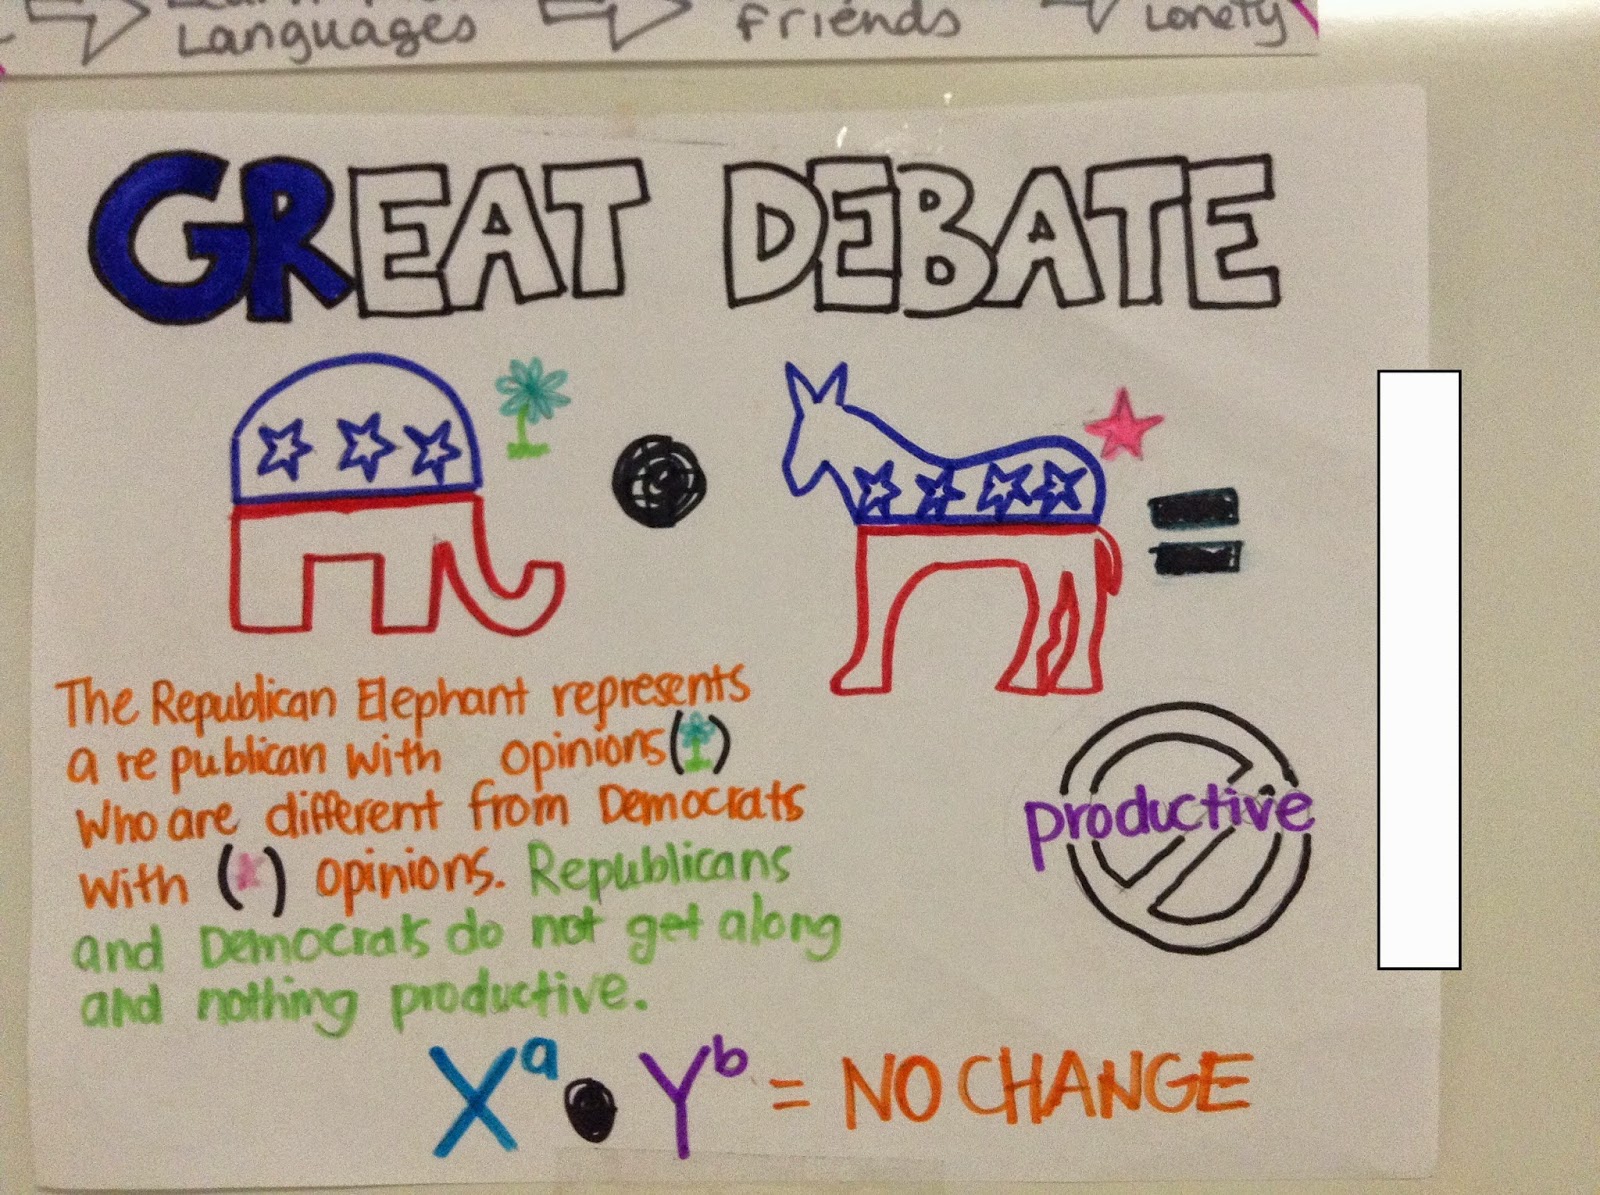 Languages
Friends
Lonely
GREAT DEBATE
The Republican Elephant represents
a republican with opinions( )
Who are different from Democrats
With ( ) opinions. Republicans
and Democrats do not get along
and nothing productive.
productive
Xᵃ • Yᵇ = NO CHANGE